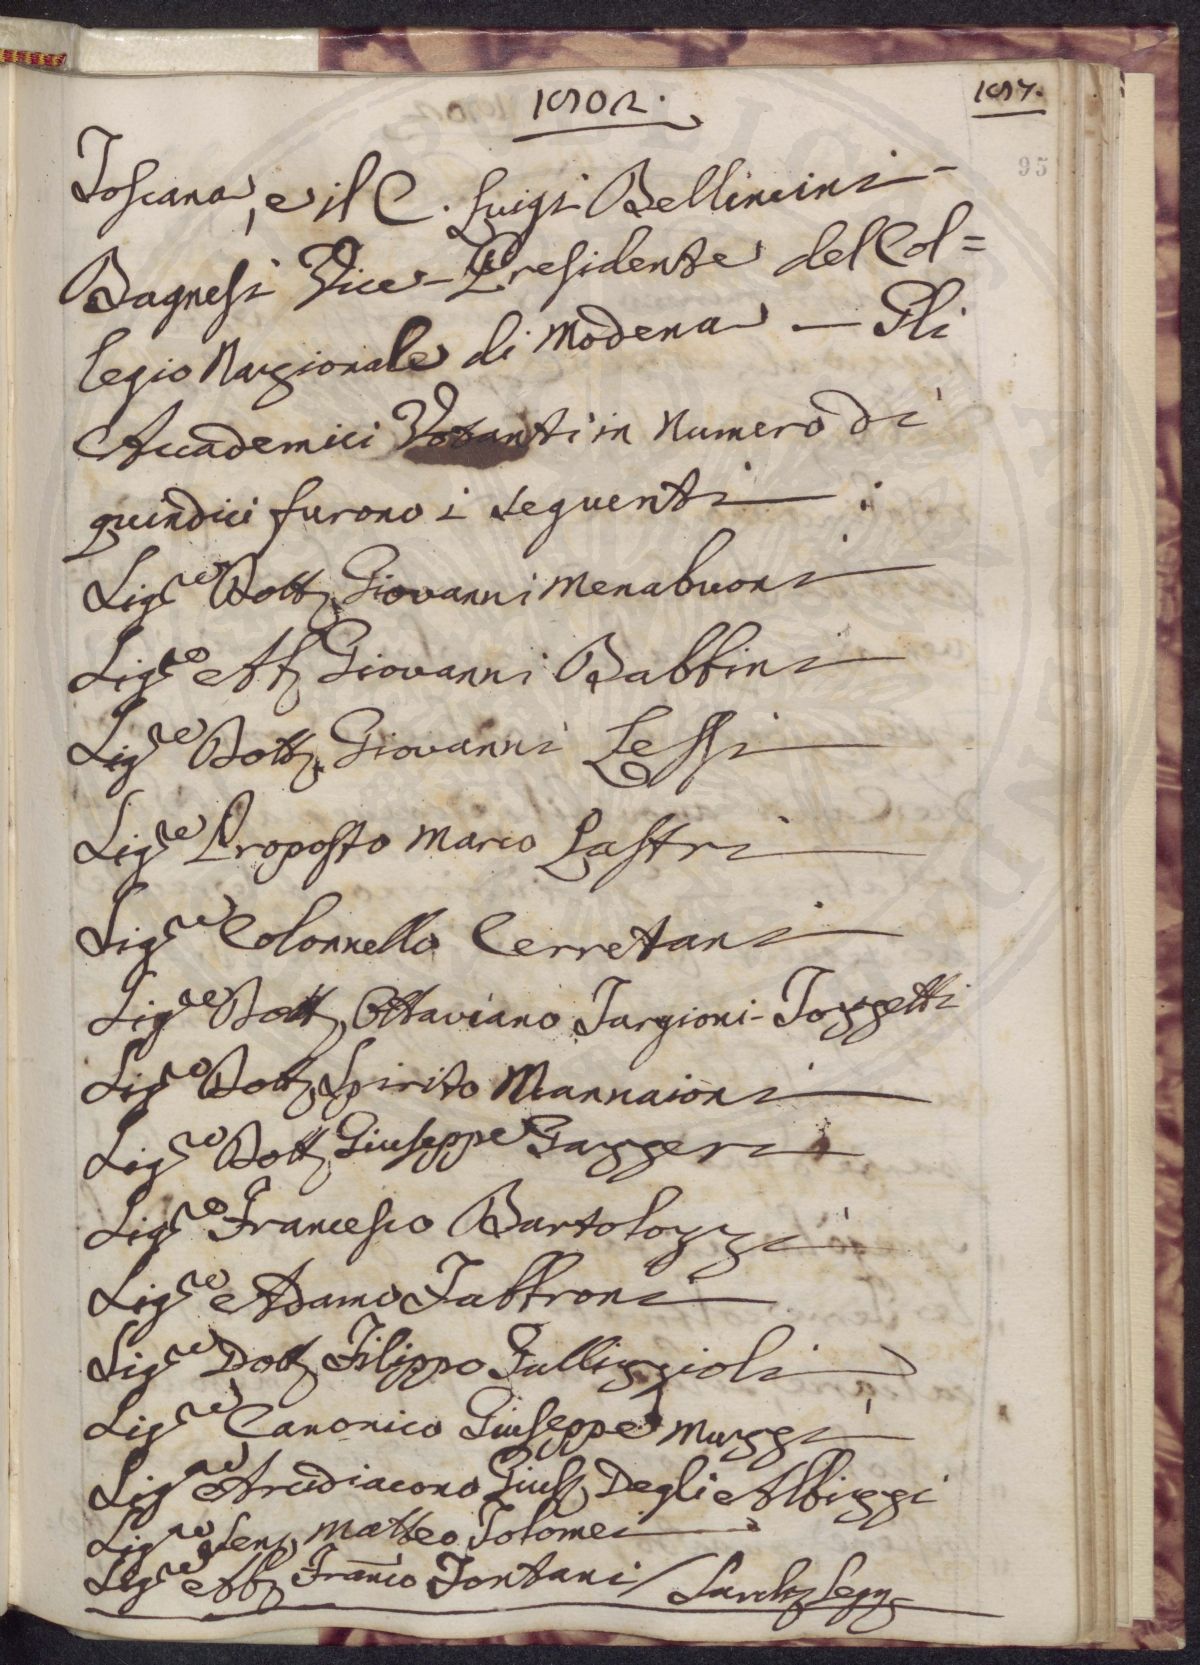 1802.
187.
95
Toscana, e il C. Luigi Bellincini
Bagnesi Vice-Presidente del Col=
legio Nazionale di Modena — Gli
Accademici Votanti in Numero di
quindici furono i seguenti :
Sig.re Dott. Giovanni Menabuoni
Sig.re Ab. Giovanni Babbini
Sig.re Dott. Giovanni Lessi
Sig.re Proposto Marco Lastri
Sig.re Colonnello Cerretani
Sig.re Dott. Ottaviano Targioni-Tozzetti
Sig.re Dott. Spirito Mannaioni
Sig.re Dott. Giuseppe Gazzeri
Sig.re Francesco Bartolozzi
Sig.re Adamo Fabbroni
Sig.re Dott. Filippo Gallizzioli
Sig.re Canonico Giuseppe Muzzi
Sig.re Arcidiacono Gius. Degli Albizzi
Sig.re Sen. Matteo Tolomei
Sig.re Ab. Franco Fontani /